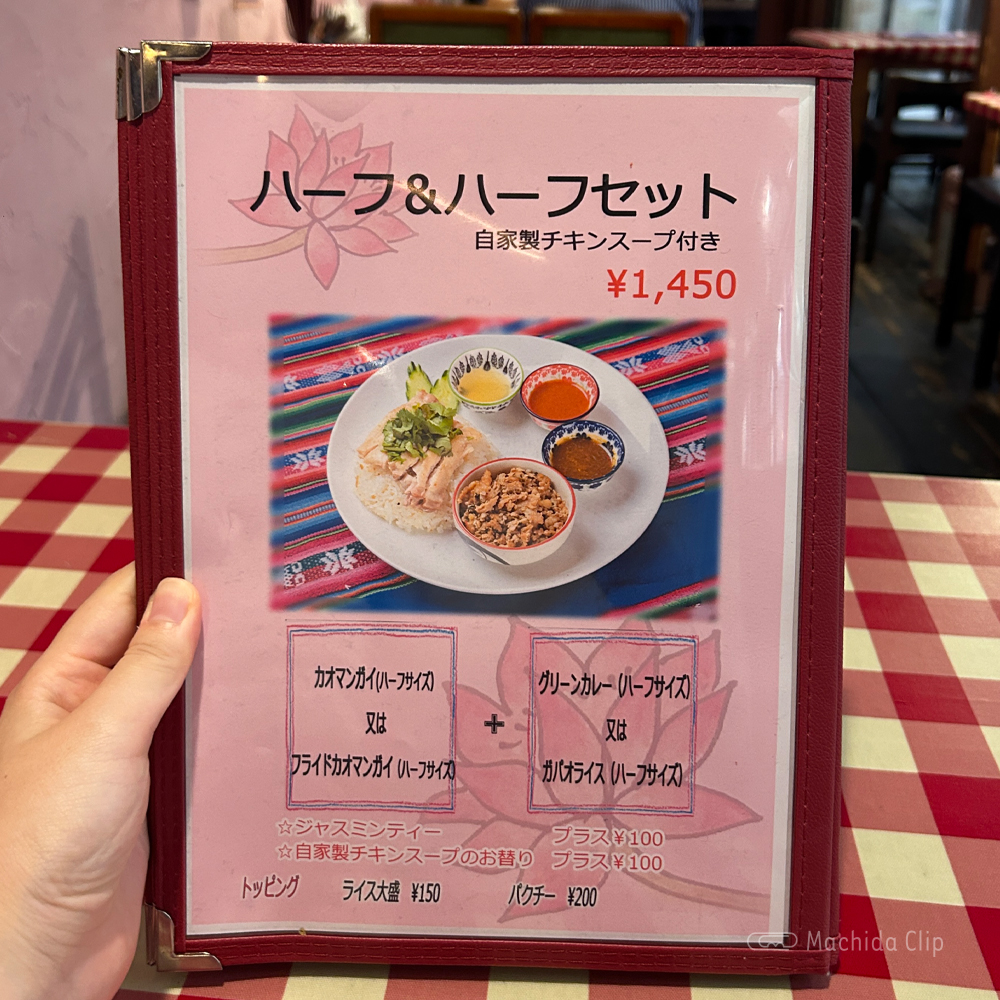 ハーフ&ハーフセット
自家製チキンスープ付き
¥1,450
カオマンガイ(ハーフサイズ)
又は
フライドカオマンガイ (ハーフサイズ)
+
グリーンカレー (ハーフサイズ)
又は
ガパオライス (ハーフサイズ)
☆ジャスミンティー プラス¥100
☆自家製チキンスープのお替り プラス¥100
トッピング ライス大盛 ¥150 パクチー ¥200
Machida Clip